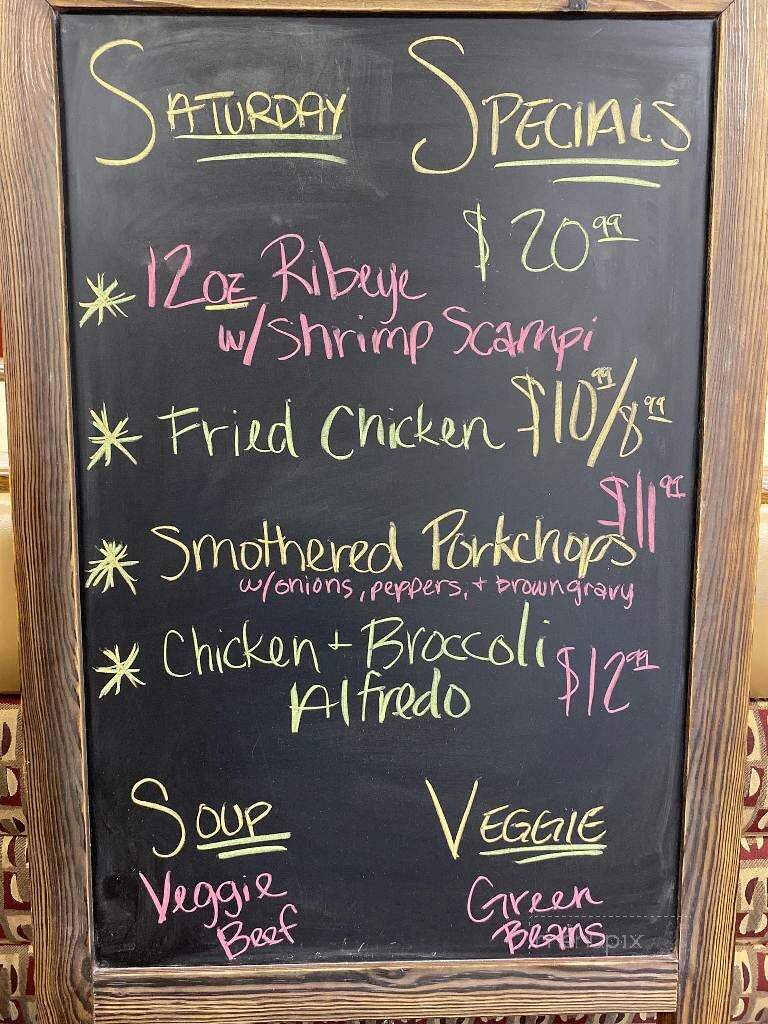 SATURDAY SPECIALS
$20.99
* 12oz Ribeye
w/Shrimp Scampi
* Fried Chicken $10.99/8.99
$11.99
* Smothered Porkchops
w/onions, peppers, + brown gravy
* Chicken + Broccoli
Alfredo $12.99
SOUP VEGGIE
Veggie Green
Beef Beans